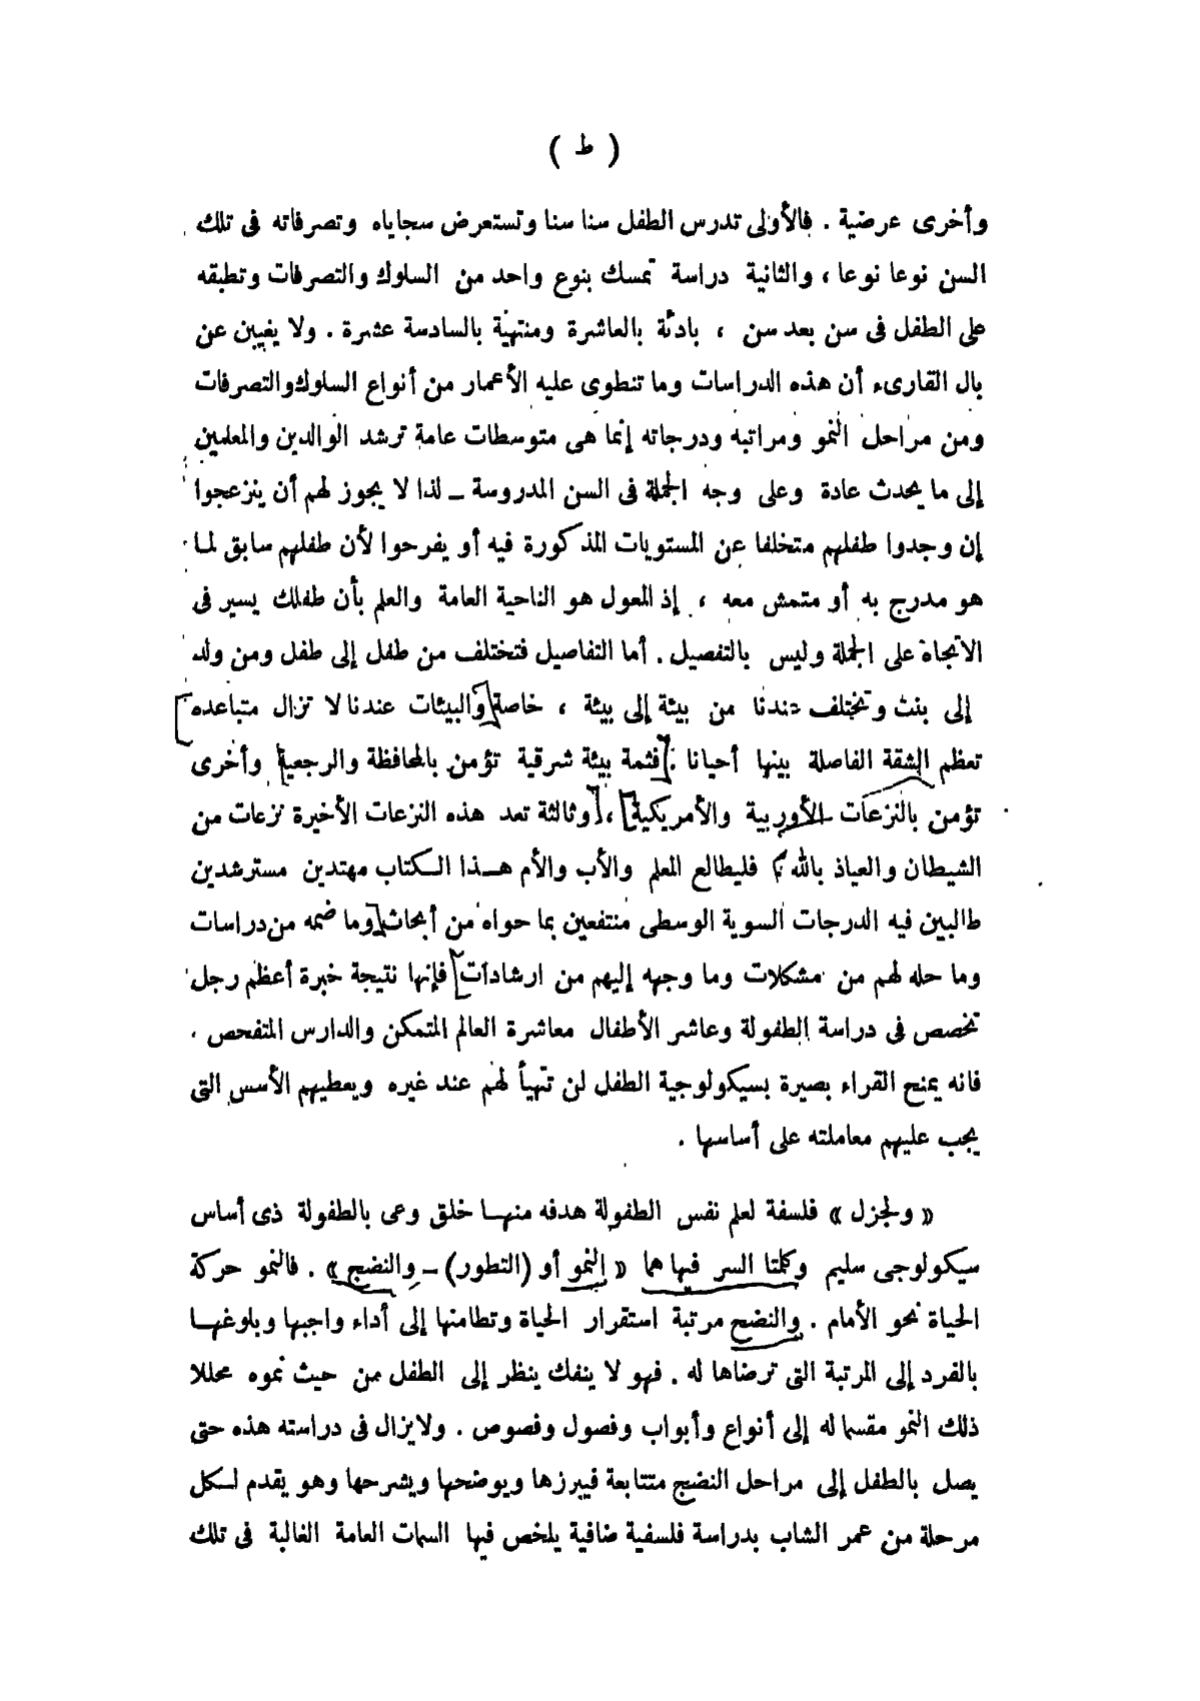 ( ط )
وأخرى عرضية . فالأولى تدرس الطفل سنا سنا وتستعرض سجاياه وتصرفاته فى تلك
السن نوعا نوعا ، والثانية دراسة تمسك بنوع واحد من السلوك والتصرفات وتطبقه
على الطفل فى سن بعد سن ، بادئة بالعاشرة ومنتهية بالسادسة عشرة . ولا يغيبن عن
بال القارىء أن هذه الدراسات وما تنطوى عليه الأعمار من أنواع السلوك والتصرفات
ومن مراحل النمو ومراتبه ودرجاته إنما هى متوسطات عامة ترشد الوالدين والمعلمين
إلى ما يحدث عادة وعلى وجه الجملة فى السن المدروسة ــ لذا لا يجوز لهم أن ينزعجوا
إن وجدوا طفلهم متخلفا عن المستويات المذكورة فيه أو يفرحوا لأن طفلهم سابق لما
هو مدرج به أو متمش معه ، إذ المعول هو الناحية العامة والعلم بأن طفلك يسير فى
الاتجاه على الجملة وليس بالتفصيل . أما التفاصيل فتختلف من طفل إلى طفل ومن ولد
إلى بنت وتختلف عندنا من بيئة إلى بيئة ، خاصة والبيئات عندنا لا تزال متباعده
تعظم الشقة الفاصلة بينها أحيانا : فثمة بيئة شرقية تؤمن بالمحافظة والرجعية وأخرى
تؤمن بالنزعات الأوربية والأمريكية ، وثالثة تعد هذه النزعات الأخيرة نزعات من
الشيطان والعياذ بالله ؟ فليطالع المعلم والأب والأم هــذا الكتاب مهتدين مسترشدين
طالبين فيه الدرجات السوية الوسطى منتفعين بما حواه من أبحاث وما ضمه من دراسات
وما حله لهم من مشكلات وما وجهه إليهم من ارشادات فإنها نتيجة خبرة أعظم رجل
تخصص فى دراسة الطفولة وعاشر الأطفال معاشرة العالم المتمكن والدارس المتفحص ،
فانه يمنح القراء بصيرة بسيكولوجية الطفل لن تتهيأ لهم عند غيره ويعطيهم الأسس التى
يجب عليهم معاملته على أساسها .
« ولجزل » فلسفة لعلم نفس الطفولة هدفه منهــا خلق وعى بالطفولة ذى أساس
سيكولوجى سليم وكلمتا السر فيها هما « النمو أو (التطور) ــ والنضج » . فالنمو حركة
الحياة نحو الأمام . والنضج مرتبة استقرار الحياة وتطامنها إلى أداء واجبها وبلوغهــا
بالفرد إلى المرتبة التى ترضاها له . فهو لا ينفك ينظر إلى الطفل من حيث نموه محللا
ذلك النمو مقسما له إلى أنواع وأبواب وفصول وفصوص . ولا يزال فى دراسته هذه حتى
يصل بالطفل إلى مراحل النضج متتابعة فيبرزها ويوضحها ويشرحها وهو يقدم لكل
مرحلة من عمر الشاب بدراسة فلسفية ضافية يلخص فيها السمات العامة الغالبة فى تلك